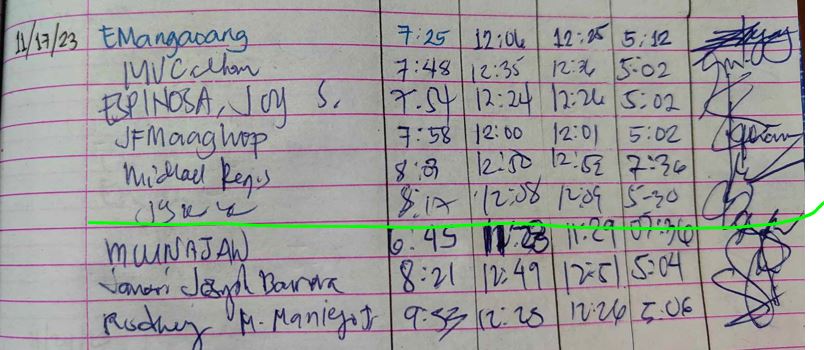 11/17/23 EMangacang 7:25 12:06 12:25 5:12
7:48 12:35 12:36 5:02
ESPINOSA, JOY S. 7:54 12:24 12:26 5:02
JFMaaghop 7:58 12:00 12:01 5:02
Michael Regis 8:09 12:50 12:52 7:36
8:17 12:08 12:09 5:30
MUNAJAN 6:45 11:28 11:29 07:36
Joseph 8:21 12:49 12:51 5:04
Rodney M. Maniego Jr 9:53 12:25 12:26 5:06